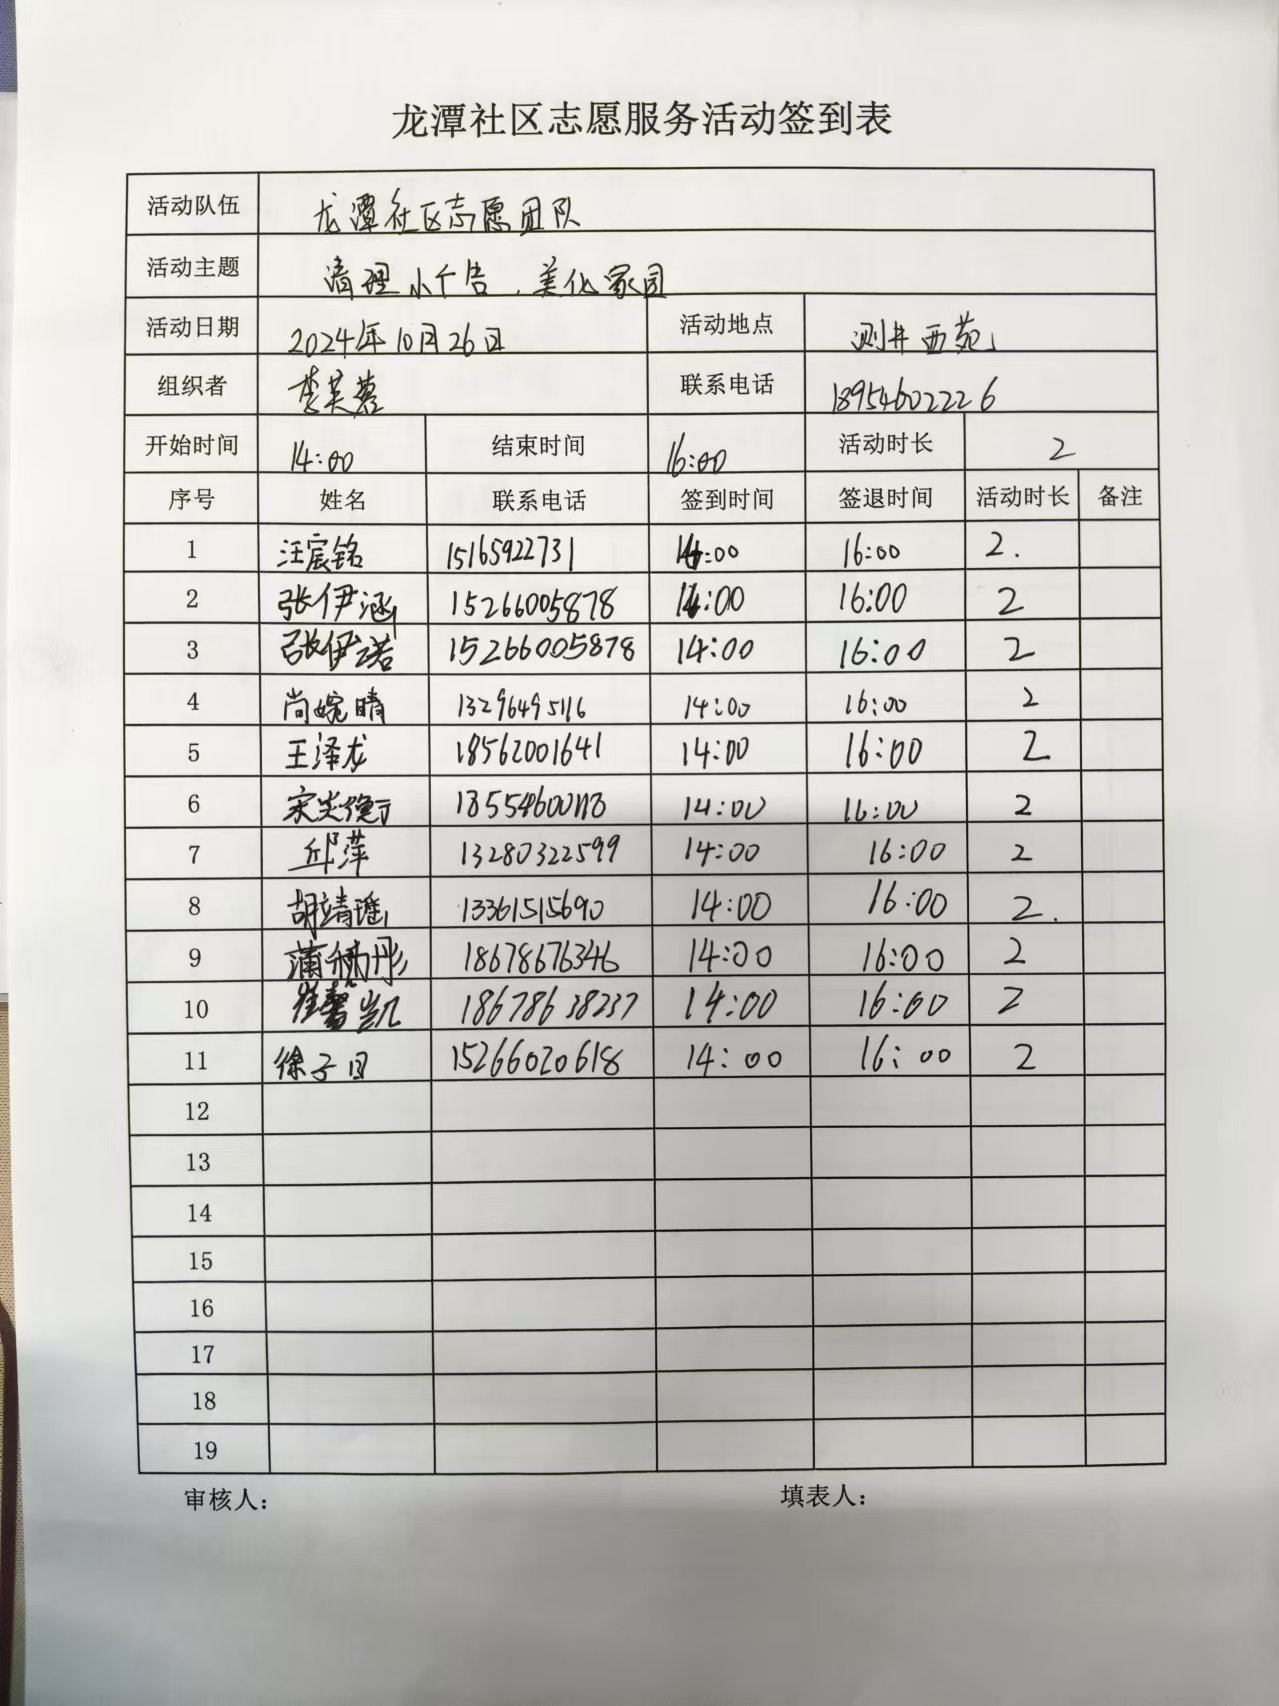 龙潭社区志愿服务活动签到表
活动队伍 龙潭社区志愿团队
活动主题 清理小广告、美化家园
活动日期 2024年10月26日 活动地点 测井西苑
组织者 李芙蓉 联系电话 18954602226
开始时间 14:00 结束时间 16:00 活动时长 2
序号 姓名 联系电话 签到时间 签退时间 活动时长 备注
1 汪宸铭 15165922731 14:00 16:00 2.
2 张伊涵 15266005878 14:00 16:00 2
3 张伊诺 15266005878 14:00 16:00 2
4 尚婉晴 13296495116 14:00 16:00 2
5 王泽龙 18562001641 14:00 16:00 2
6 14:00 16:00 2
7 邱萍 13280322599 14:00 16:00 2
8 胡靖瑶 13361515690 14:00 16:00 2.
9 18678676346 14:00 16:00 2
10 崔馨凯 18678638237 14:00 16:00 2
11 徐子日 15266020618 14:00 16:00 2
12
13
14
15
16
17
18
19
审核人： 填表人：